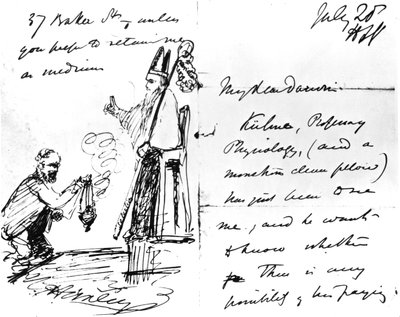 37 Baker St, unless
you prefer to retain me
as medium
July 20
My dear Darwin
Kühne, Prof. of
Physiology, (and a
clever fellow)
has just been
me, and he wants
to know whether
there is any
possibility of his paying